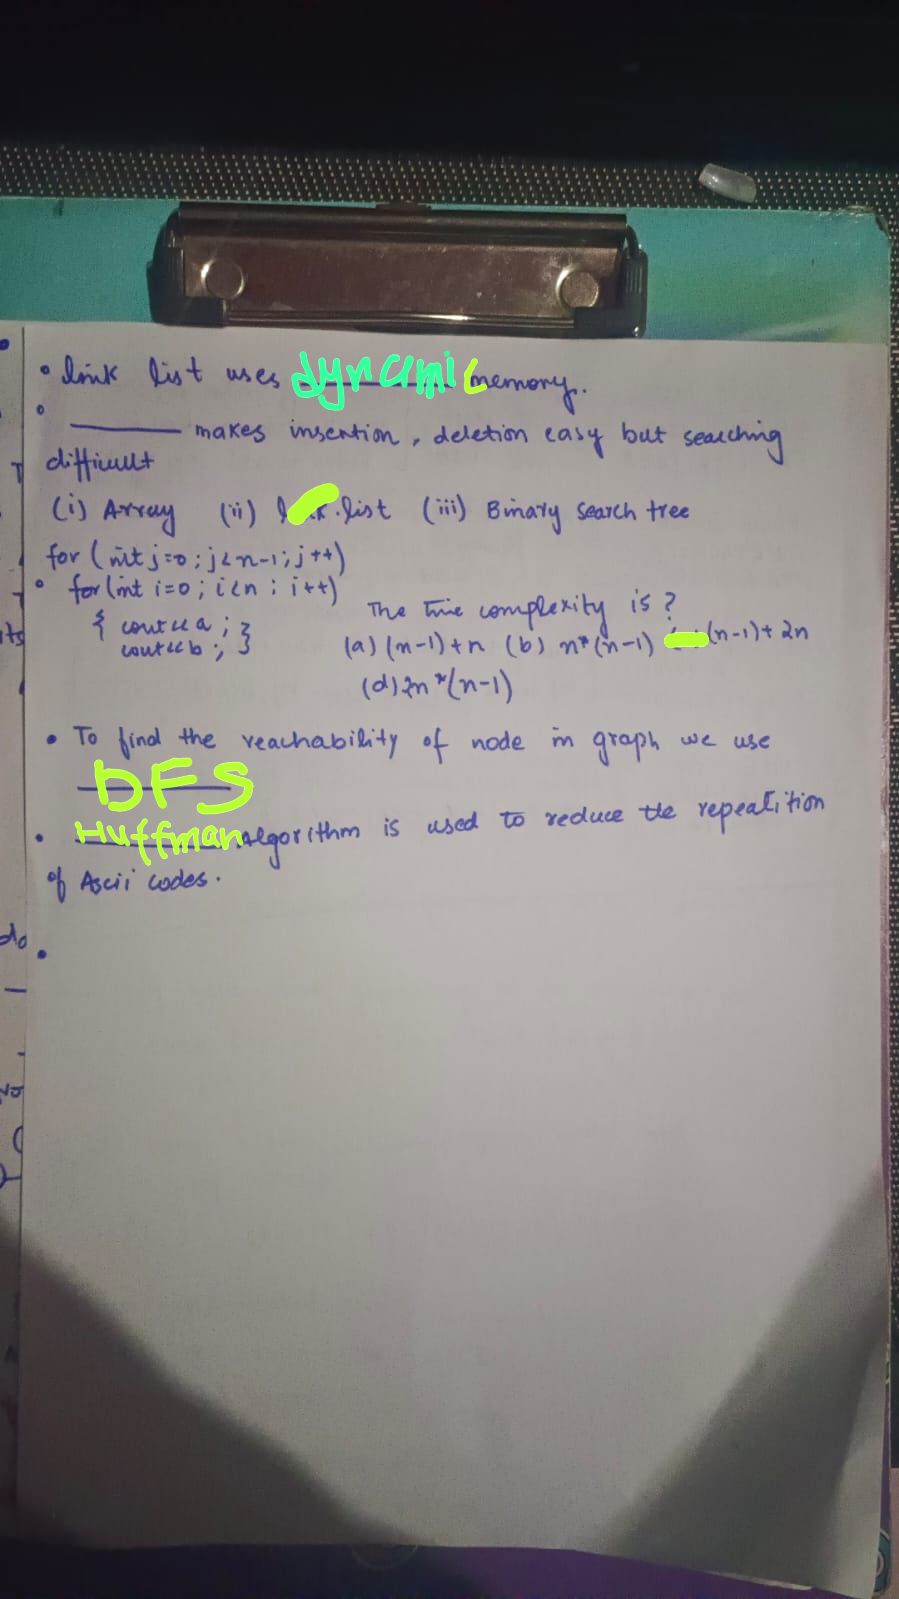 • link list uses dynamic memory.
• ______ makes insertion, deletion easy but searching
difficult
(i) Array (ii) list (iii) Binary search tree
for (int j=0; j<n-1; j++)
• for (int i=0; i<n; i++)
{ cout<<a; }
cout<<b;
The time complexity is?
(a) (n-1)+n (b) n*(n-1) (n-1)+2n
(d) 2n*(n-1)
• To find the reachability of node in graph we use
DFS
• Huffman Algorithm is used to reduce the repeatition
of Ascii codes.
•